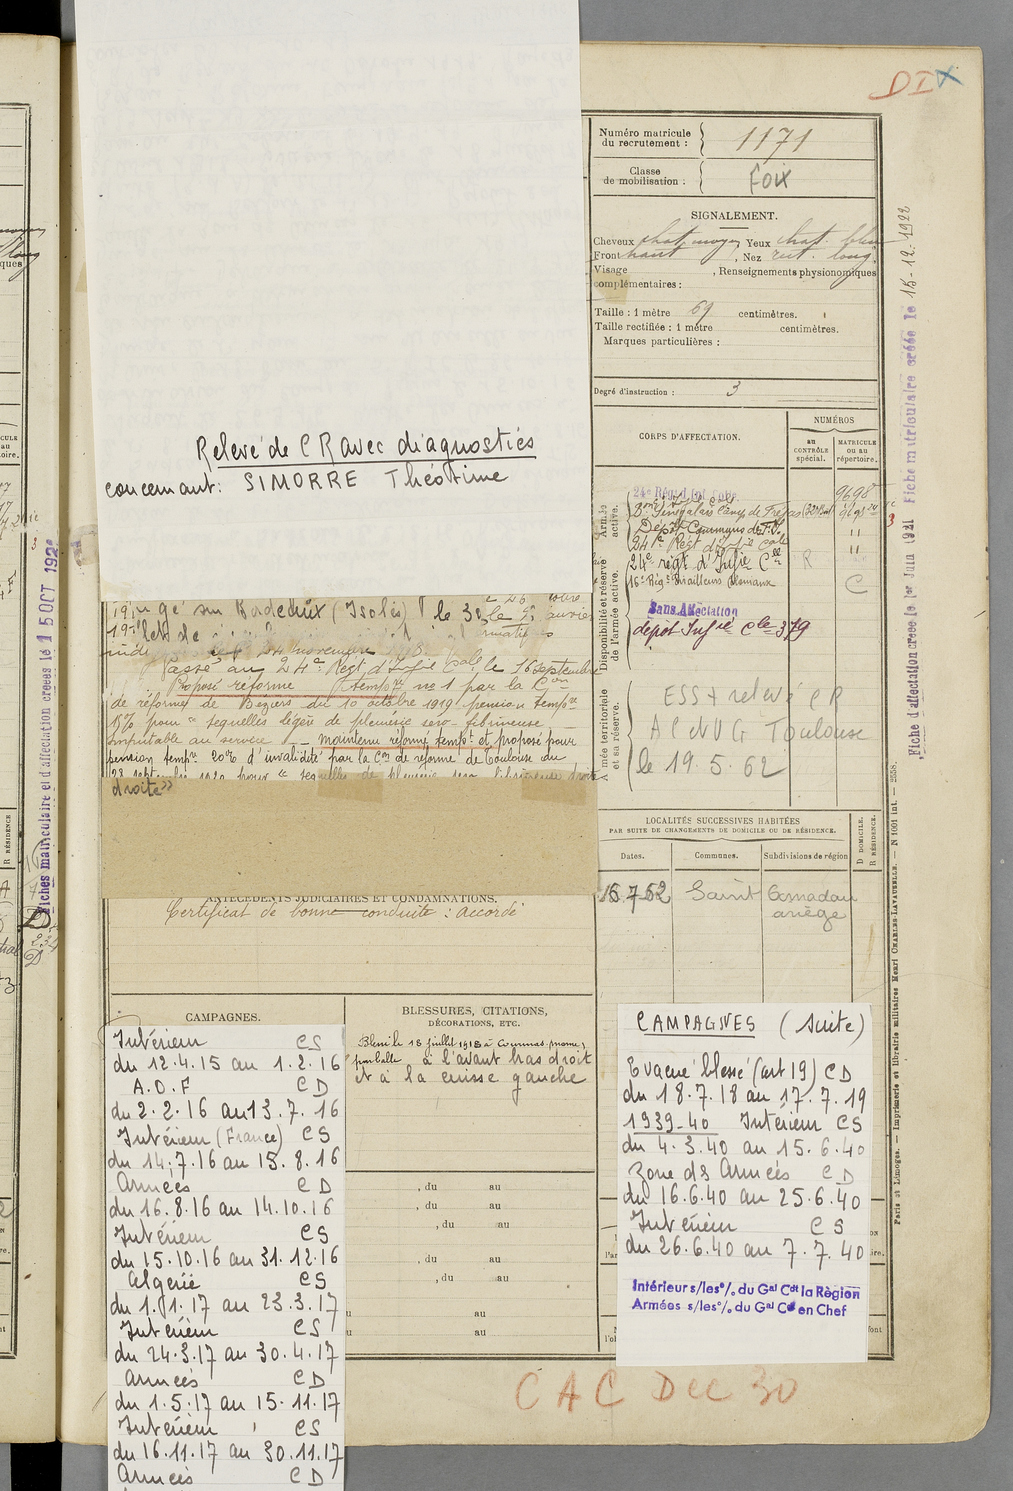 DIX
Numéro matricule
du recrutement :
1171
Classe
de mobilisation :
Foix
SIGNALEMENT.
Cheveux chat. moyen Yeux chat. bleu
Front haut , Nez rect. long.
Visage , Renseignements physionomiques
complémentaires :
Taille : 1 mètre 69 centimètres.
Taille rectifiée : 1 mètre centimètres.
Marques particulières :
Degré d'instruction : 3
Relevé de CR avec diagnostics
concernant : SIMORRE Théotime
CORPS D'AFFECTATION.
NUMÉROS
au
CONTRÔLE
spécial.
MATRICULE
ou au
répertoire.
Armée
active.
24e Régt Inf. Colle.
9698
Bon Sénégalais Camp de Fréjus
Dépôt Commun des T.S.
24e Régt d'Infie Cole
Disponibilité et réserve
de l'armée active.
24e régt d'Infie Clle
R
16e Rég. Tirailleurs
C
Sans Affectation
dépôt Infie Cle 379
Armée territoriale
et sa réserve.
ESS + relevé CR
AC et VG Toulouse
le 19.5.62
sur Bordeaux (Isolés) le
14 novembre
Passé au 24e Régt d'Infie Cole le 16 septembre
Proposé réforme tempre no 1 par la Con
de réforme de Béziers du 10 octobre 1919 pension tempre
15% pour "séquelles légères de pleurésie séro-fibrineuse
imputable au service — maintenu réformé tempt et proposé pour
pension tempre 20% d'invalidité par la Cn de réforme de Toulouse du
séquelles de pleurésie séro fibrineuse droite
droite"
ANTÉCÉDENTS JUDICIAIRES ET CONDAMNATIONS.
Certificat de bonne conduite : accordé
LOCALITÉS SUCCESSIVES HABITÉES
PAR SUITE DE CHANGEMENTS DE DOMICILE OU DE RÉSIDENCE.
Dates.
Communes.
Subdivisions de région
D DOMICILE.
R RÉSIDENCE.
16.7.62 Saint Amadou
ariège
CAMPAGNES.
Intérieur CS
du 12.4.15 au 1.2.16
A.O.F CD
du 2.2.16 au 13.7.16
Intérieur (France) CS
du 14.7.16 au 15.8.16
Armées CD
du 16.8.16 au 14.10.16
Intérieur CS
du 15.10.16 au 31.12.16
Algérie CS
du 1.1.17 au 23.3.17
Intérieur CS
du 24.3.17 au 30.4.17
Armées CD
du 1.5.17 au 15.11.17
Intérieur CS
du 16.11.17 au 30.11.17
Armées CD
BLESSURES, CITATIONS,
DÉCORATIONS, ETC.
Blessé le 18 juillet 1918 à
par balle à l'avant bras droit
et à la cuisse gauche
, du au
, du au
, du au
, du au
, du au
du au
du au
CAMPAGNES (suite)
Evacué blessé (art 19) CD
du 18.7.18 au 17.7.19
1939-40 Intérieur CS
du 4.3.40 au 15.6.40
Zone des Armées CD
du 16.6.40 au 25.6.40
Intérieur CS
du 26.6.40 au 7.7.40
Intérieur s/les o/. du Gal Cdt la Région
Armées s/les o/. du Gal Ct en Chef
CAC Dec 30
Fiche matriculaire créée le 15-12-1922
Fiche d'affectation créée le 1er Juin 1921
Paris et Limoges. — Imprimerie et librairie militaires Henri CHARLES-LAVAUZELLE. — N° 1001 int. — 2558.
Fiches matriculaire et d'affectation créées le 15 OCT 192